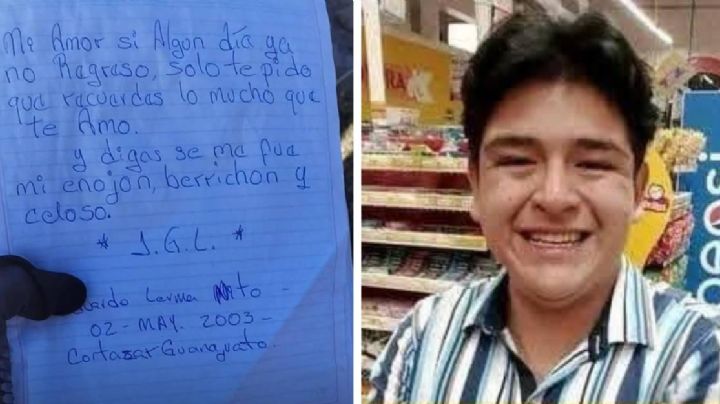 Mi Amor si Algun día ya
no Regraso, solo te pido
que recuerdas lo mucho que
te Amo.
y digas se me fue
mi enojon, berrichon y
celoso.
* J.G.L. *
Lerma Nito -
02 - MAY. 2003 -
Cortazar Guanajuato.
pepsi